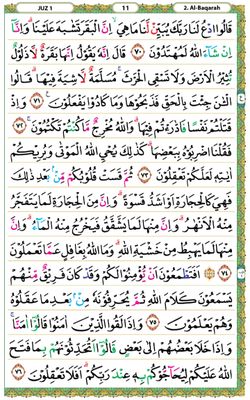 JUZ 1 11 2. Al-Baqarah
قَالُوا ادْعُ لَنَا رَبَّكَ يُبَيِّنْ لَّنَا مَا هِيَ ۙ اِنَّ الْبَقَرَ تَشٰبَهَ عَلَيْنَا ۗ وَاِنَّاۤ
اِنْ شَآءَ اللّٰهُ لَمُهْتَدُوْنَ ﴿٧٠﴾ قَالَ اِنَّهٗ يَقُوْلُ اِنَّهَا بَقَرَةٌ لَّا ذَلُوْلٌ
تُثِيْرُ الْاَرْضَ وَلَا تَسْقِى الْحَرْثَ ۚ مُسَلَّمَةٌ لَّا شِيَةَ فِيْهَا ۗ قَالُوا
الْـٰٔنَ جِئْتَ بِالْحَقِّ ۗ فَذَبَحُوْهَا وَمَا كَادُوْا يَفْعَلُوْنَ ﴿٧١﴾ وَاِذْ
قَتَلْتُمْ نَفْسًا فَادّٰرَءْتُمْ فِيْهَا ۗ وَاللّٰهُ مُخْرِجٌ مَّا كُنْتُمْ تَكْتُمُوْنَ ﴿٧٢﴾
فَقُلْنَا اضْرِبُوْهُ بِبَعْضِهَا ۗ كَذٰلِكَ يُحْىِ اللّٰهُ الْمَوْتٰى ۙ وَيُرِيْكُمْ
اٰيٰتِهٖ لَعَلَّكُمْ تَعْقِلُوْنَ ﴿٧٣﴾ ثُمَّ قَسَتْ قُلُوْبُكُمْ مِّنْۢ بَعْدِ ذٰلِكَ
فَهِىَ كَالْحِجَارَةِ اَوْ اَشَدُّ قَسْوَةً ۗ وَاِنَّ مِنَ الْحِجَارَةِ لَمَا يَتَفَجَّرُ
مِنْهُ الْاَنْهٰرُ ۗ وَاِنَّ مِنْهَا لَمَا يَشَّقَّقُ فَيَخْرُجُ مِنْهُ الْمَآءُ ۗ وَاِنَّ
مِنْهَا لَمَا يَهْبِطُ مِنْ خَشْيَةِ اللّٰهِ ۗ وَمَا اللّٰهُ بِغَافِلٍ عَمَّا تَعْمَلُوْنَ
﴿٧٤﴾ اَفَتَطْمَعُوْنَ اَنْ يُّؤْمِنُوْا لَكُمْ وَقَدْ كَانَ فَرِيْقٌ مِّنْهُمْ
يَسْمَعُوْنَ كَلَامَ اللّٰهِ ثُمَّ يُحَرِّفُوْنَهٗ مِنْۢ بَعْدِ مَا عَقَلُوْهُ
وَهُمْ يَعْلَمُوْنَ ﴿٧٥﴾ وَاِذَا لَقُوا الَّذِيْنَ اٰمَنُوْا قَالُوْاۤ اٰمَنَّا ۖ
وَاِذَا خَلَا بَعْضُهُمْ اِلٰى بَعْضٍ قَالُوْاۤ اَتُحَدِّثُوْنَهُمْ بِمَا فَتَحَ
اللّٰهُ عَلَيْكُمْ لِيُحَآجُّوْكُمْ بِهٖ عِنْدَ رَبِّكُمْ ۗ اَفَلَا تَعْقِلُوْنَ ﴿٧٦﴾